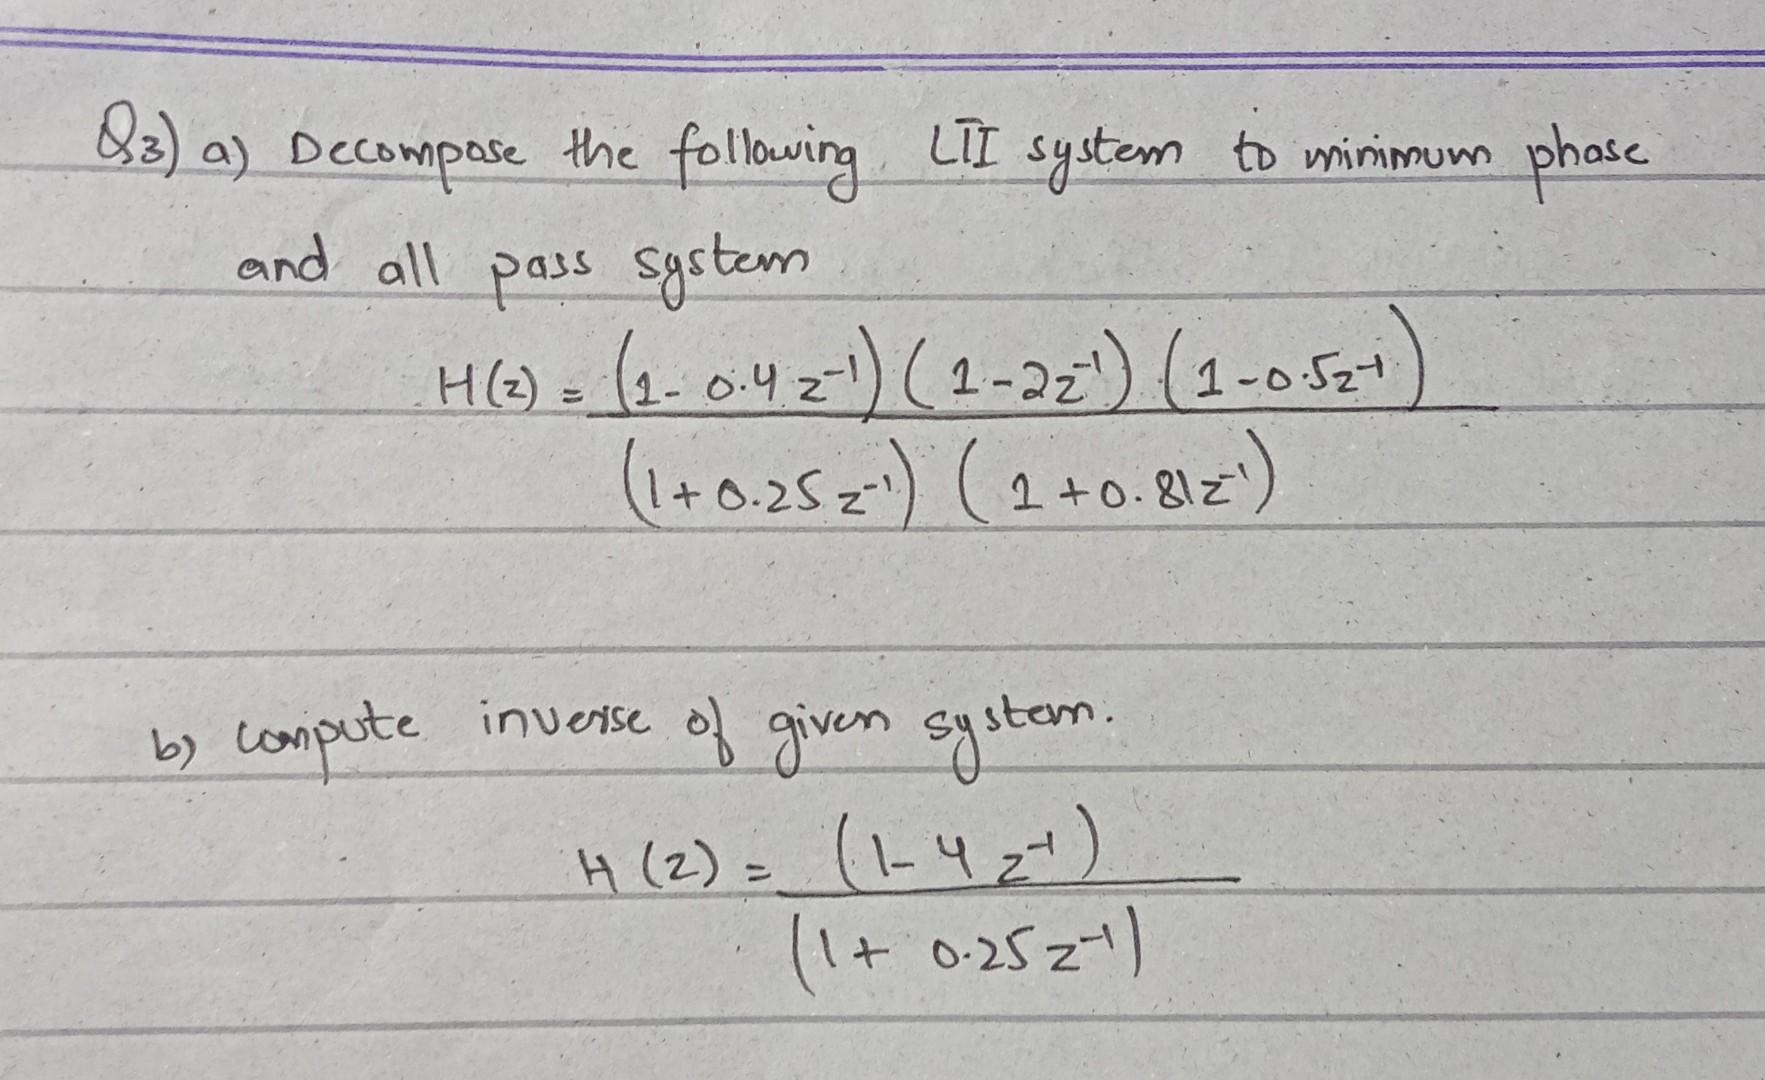 Q3) a) Decompose the following LTI system to minimum phase
and all pass system
H(z) = (1 - 0.4 z⁻¹) (1 - 2z⁻¹) (1 - 0.5z⁻¹)
(1 + 0.25 z⁻¹) (1 + 0.81z⁻¹)
b) compute inverse of given system.
H(z) = (1 - 4 z⁻¹)
(1 + 0.25 z⁻¹)